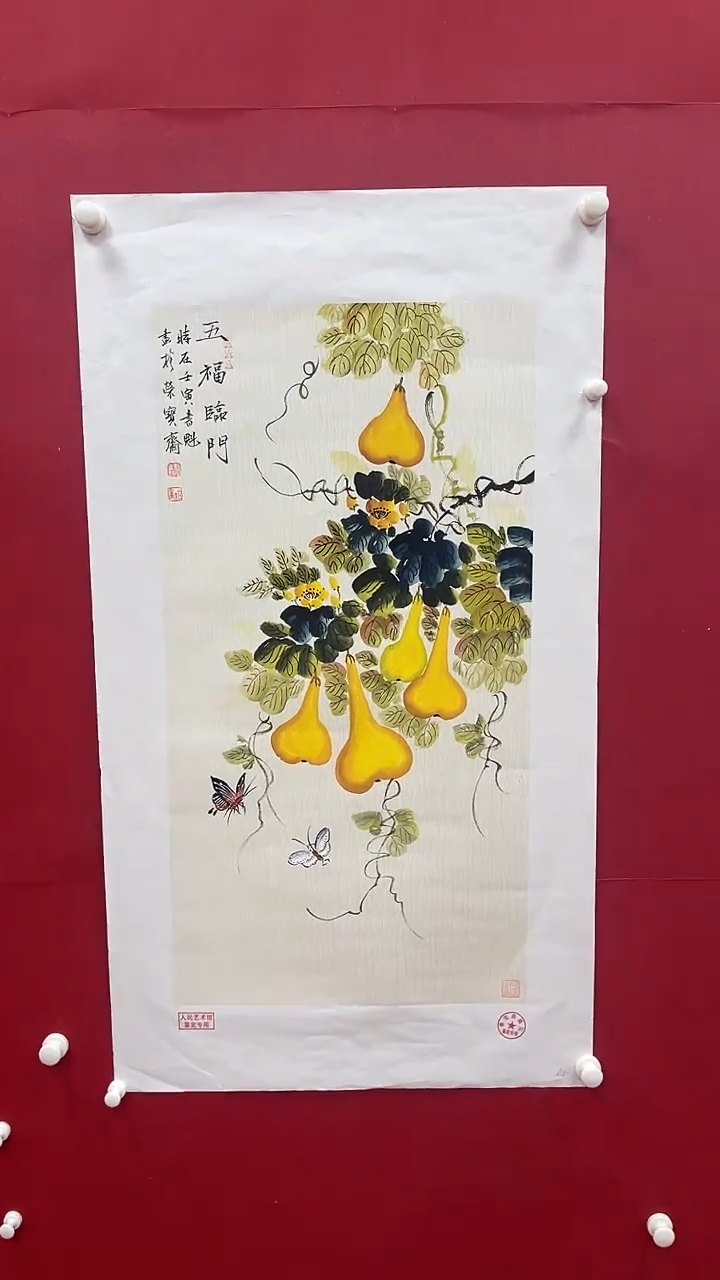 五福臨門
時在壬寅書魁
畫於榮寶齋
人民艺术馆
鉴定专用